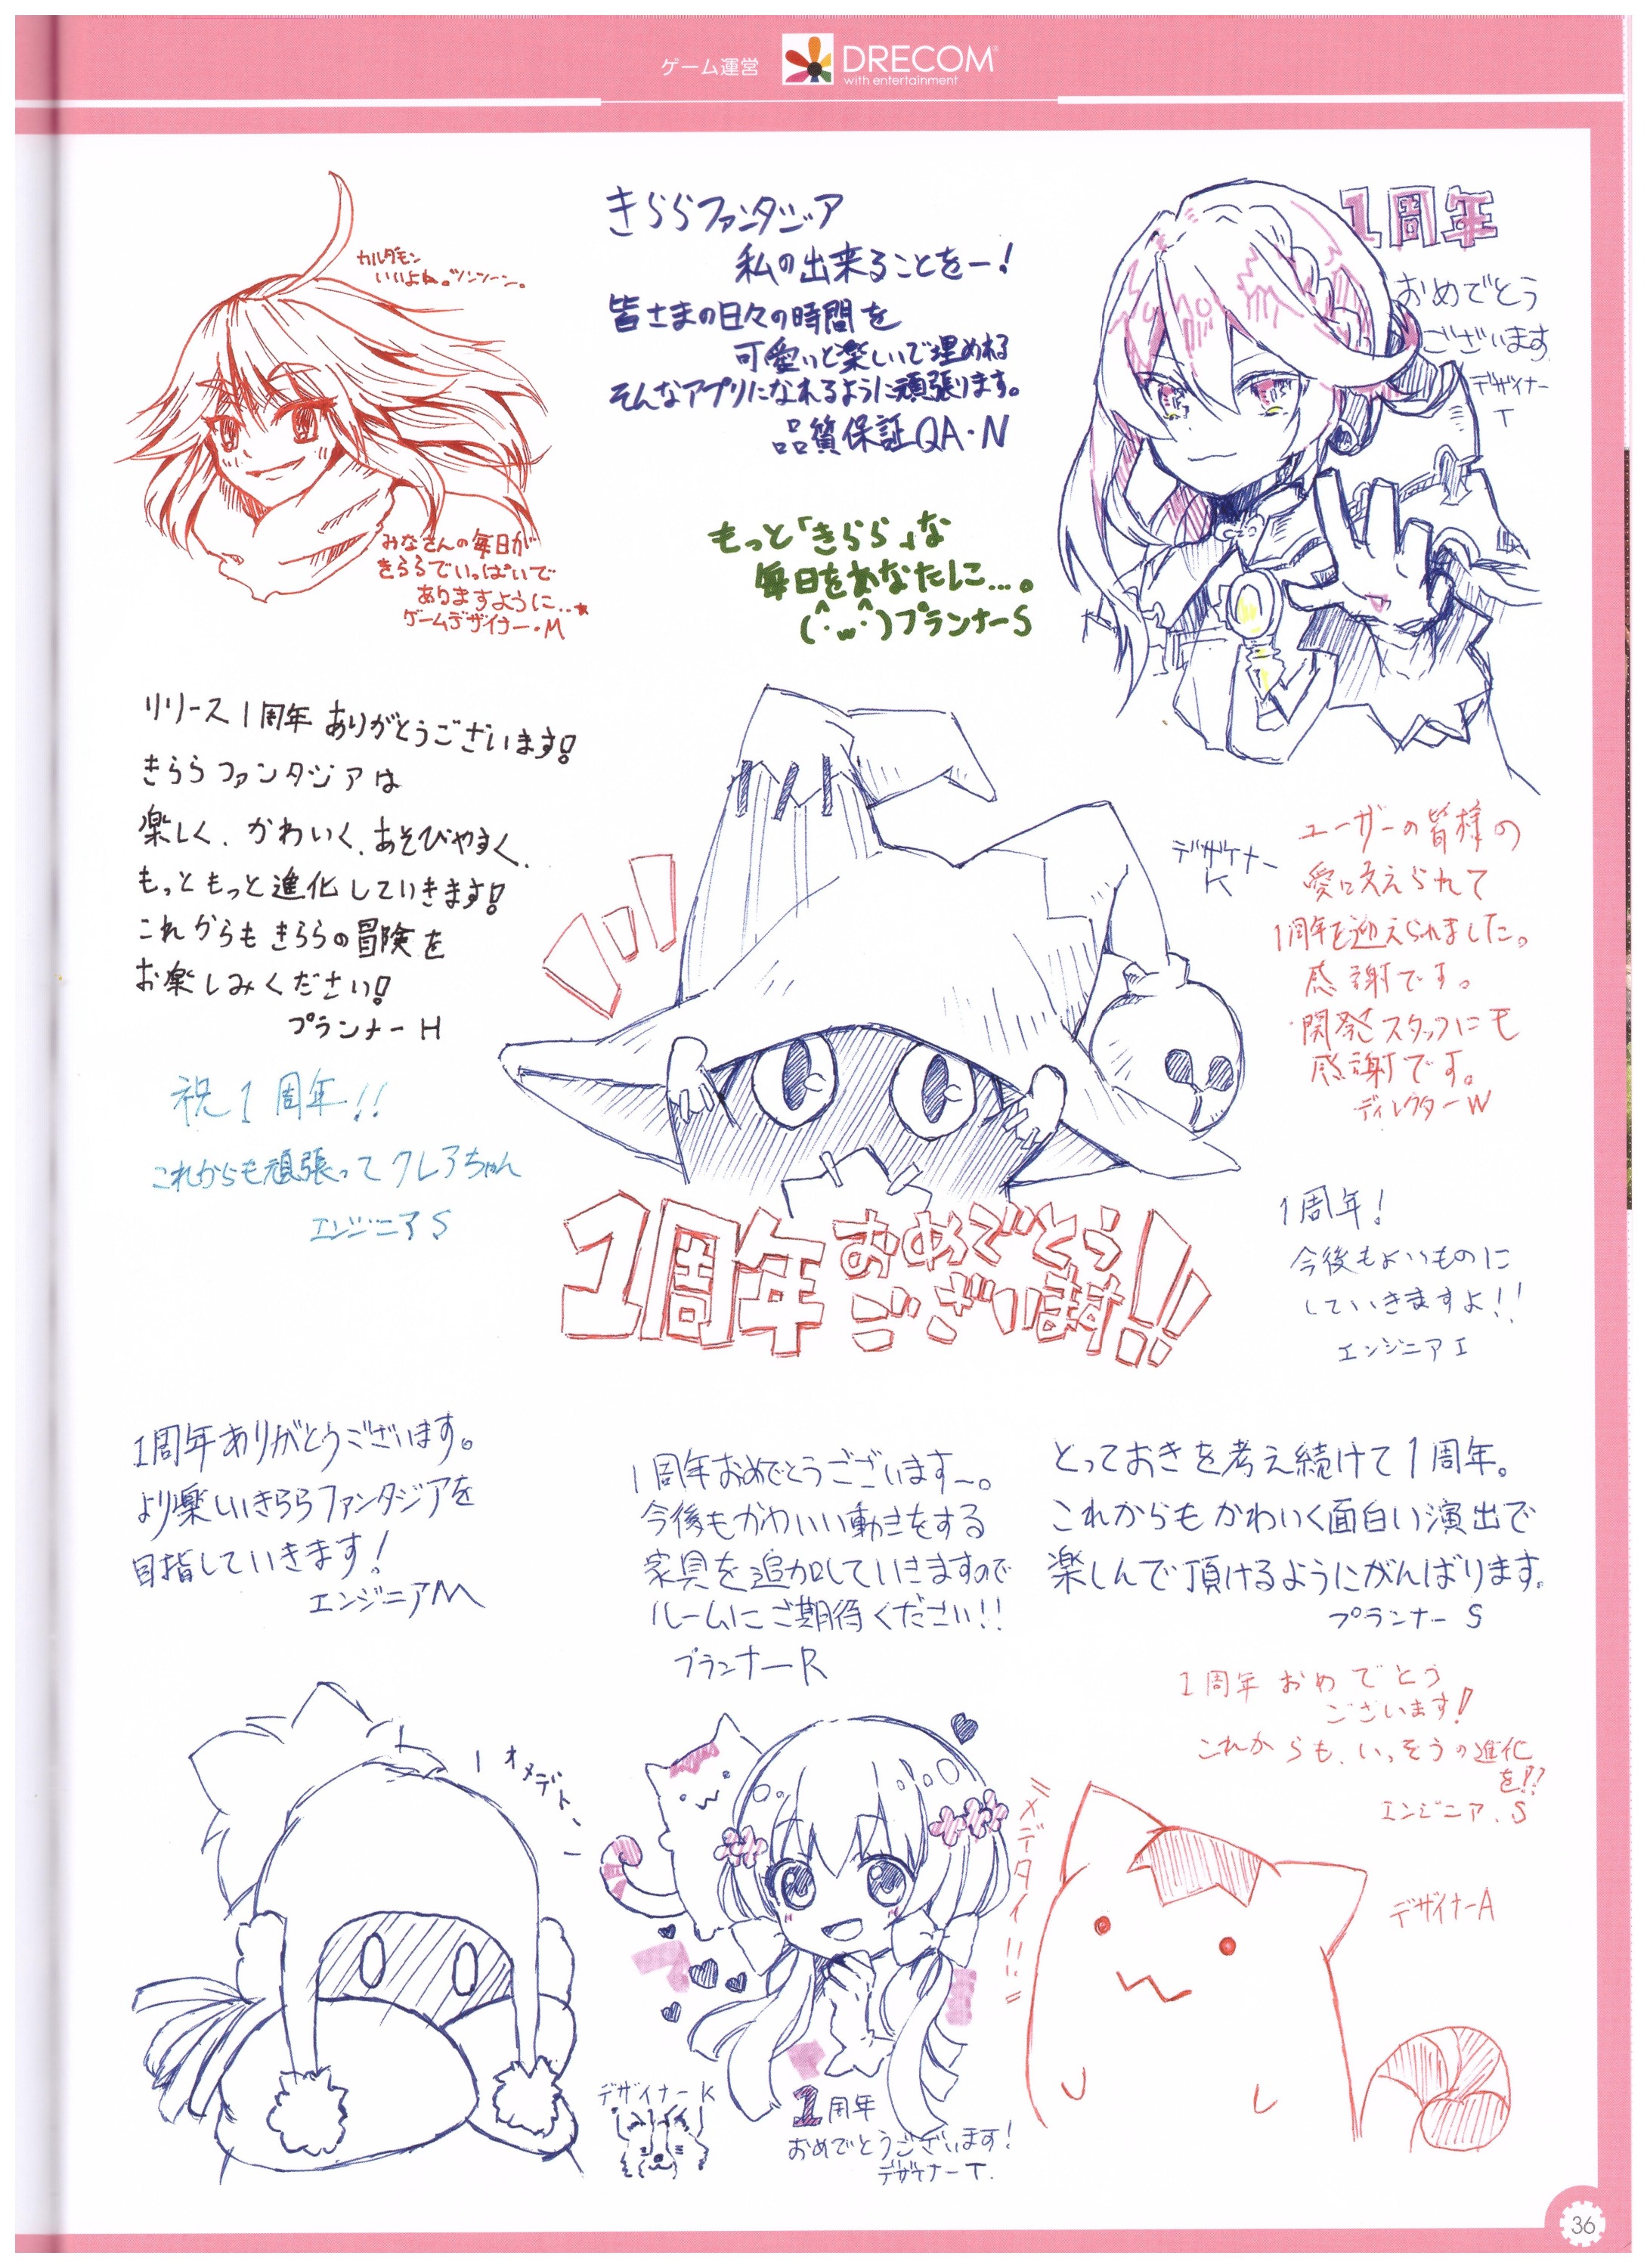 ゲーム運営
DRECOM
with entertainment
カルダモン
いいよね。ツンツーン。
みなさんの毎日が
きららでいっぱいで
ありますように…★
ゲームデザイナー・M
きららファンタジア
私の出来ることをー!
皆さまの日々の時間を
可愛いと楽しいで埋めれる
そんなアプリになれるように頑張ります。
品質保証QA・N
もっと「きらら」な
毎日をあなたに…。
(^・ω・^)プランナーS
1周年
おめでとう
ございます
デザイナー
T
リリース1周年ありがとうございます!
きららファンタジアは
楽しく、かわいく、あそびやすく、
もっともっと進化していきます!
これからもきららの冒険を
お楽しみください!
プランナーH
祝1周年!!
これからも頑張ってクレアちゃん
エンジニアS
デザイナー
K
1周年おめでとう
ございます!!
ユーザーの皆様の
愛に支えられて
1周年を迎えられました。
感謝です。
開発スタッフにも
感謝です。
ディレクターW
1周年!
今後もよいものに
していきますよ!!
エンジニアI
1周年ありがとうございます。
より楽しいきららファンタジアを
目指していきます!
エンジニアM
1周年おめでとうございます〜。
今後もかわいい動きをする
家具を追加していきますので
ルームにご期待ください!!
プランナーR
とっておきを考え続けて1周年。
これからもかわいく面白い演出で
楽しんで頂けるようにがんばります。
プランナーS
1周年おめでとう
ございます!
これからも、いっそうの進化
を!!
エンジニア.S
オメデトー
デザイナーK
1周年
おめでとうございます!
デザイナーT.
メデタイ!!!!
デザイナーA
36